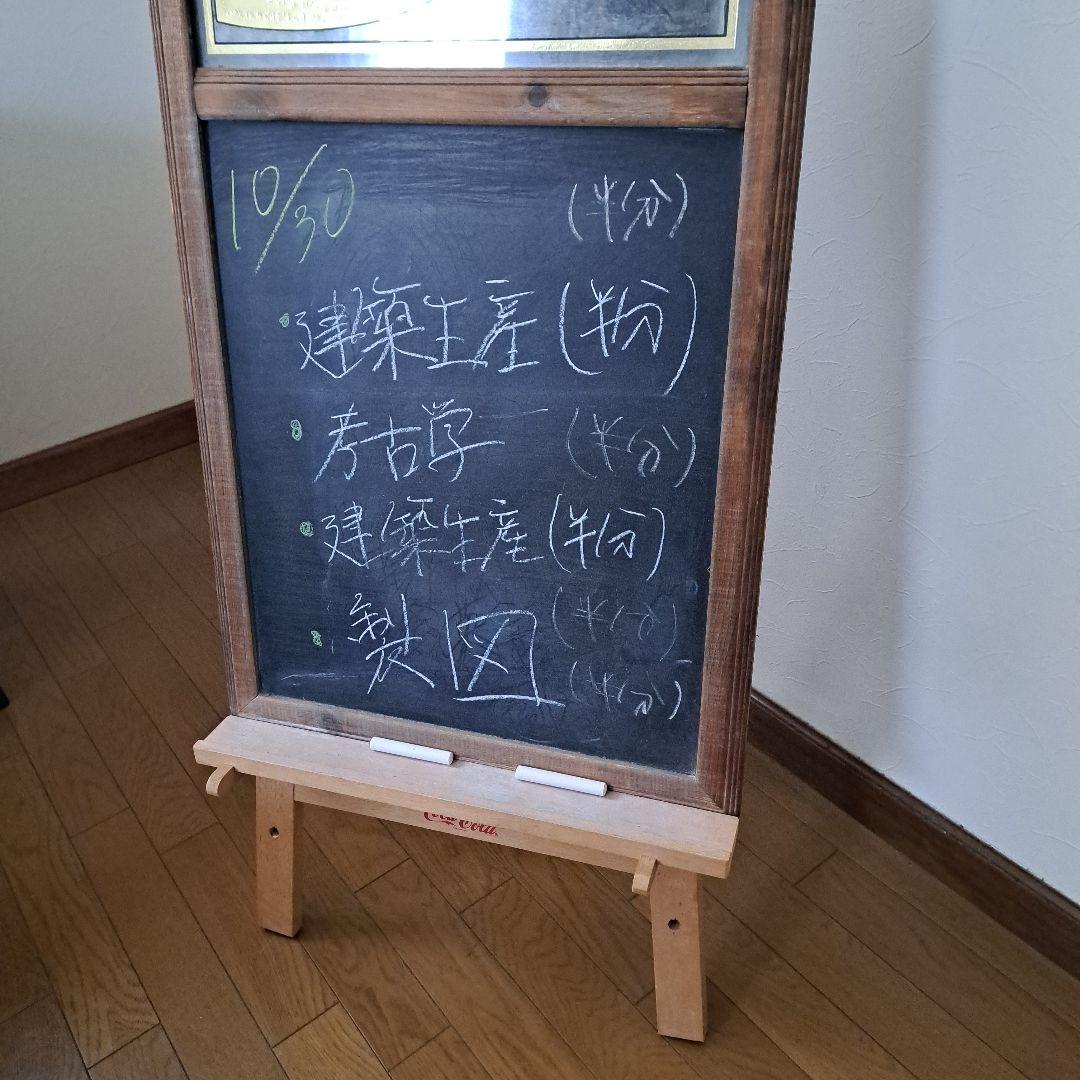 10/30 (半分)
建築生産(半分)
考古学 (半分)
建築生産(半分)
製図 (半分)
(半分)
Coca-Cola